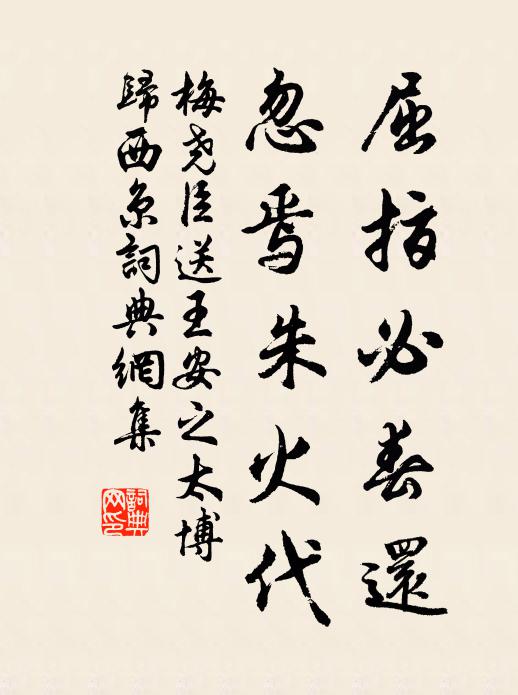 屈指必春還
忽焉朱火代
梅尧臣送王安之太博
歸西京詞典網集
詞典
网印